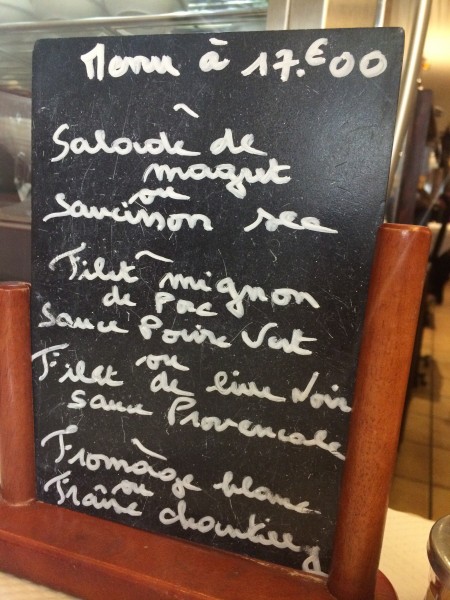 Menu à 17.€00
~
Salade de
magret
ou
saucisson sec
~
Filet mignon
de Porc
sauce Poivre Vert
ou
Filet de lieu Noir
sauce Provencale
~
Fromage blanc
ou
Fraîse chantilly